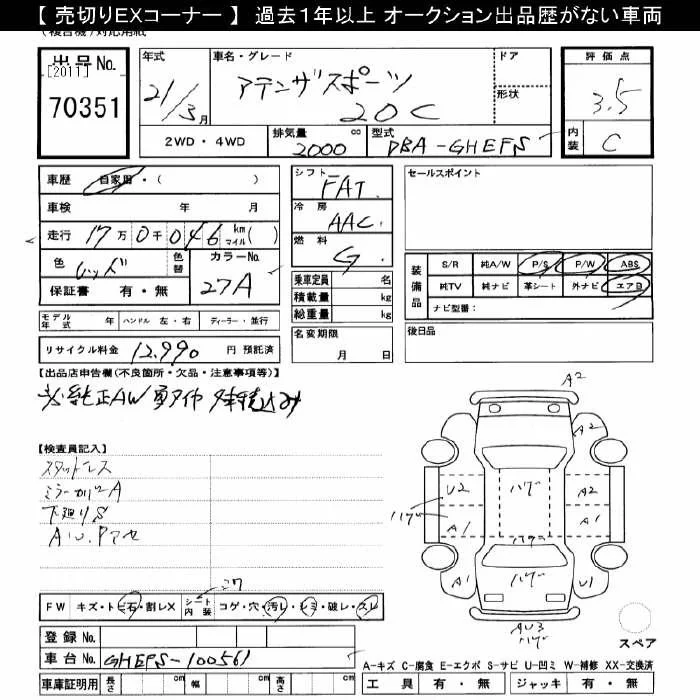 【 売切りEXコーナー 】 過去１年以上 オークション出品歴がない車両
（複合機）対応用紙
出品No.
[2011]
70351
年式
21/3月
車名・グレード
アテンザスポーツ
20C
ドア
形状
評価点
3.5
2WD・4WD
排気量 cc
2000
型式
DBA-GHEFS
内装
C
車歴 自家用・( )
車検 年 月
走行 17万0千046 km マイル( )
色 レッド 色替
カラーNo.
27A
保証書 有・無
シフト
FAT
冷房
AAC
燃料
G
乗車定員 名
積載量 kg
総重量 kg
セールスポイント
装備品
S/R 純A/W P/S P/W ABS
純TV 純ナビ 革シート 外ナビ エアB
ナビ型番：
モデル年式 年 ハンドル 左・右 ディーラー・並行
リサイクル料金 12,990 円 預託済
名変期限
月 日
後日品
【出品店申告欄（不良箇所・欠品・注意事項等）】
純正AW
【検査員記入】
スタットレス
ミラーカバーA
下廻りS
AW.Pアセ
A2
A2
U2 ハゲ A2
ハゲ
A1 A1
ハゲ
A1 ハゲ U1
AU3
ハゲ
スペア
FW キズ・トビ石・割レX シート内装 コゲ・穴・汚レ・シミ・破レ・スレ
登録No.
車台No. GHEFS-100561
車庫証明用 長さ cm 幅 cm 高さ cm
A-キズ C-腐食 E-エクボ S-サビ U-凹ミ W-補修 XX-交換済
工具 有・無 ジャッキ 有・無